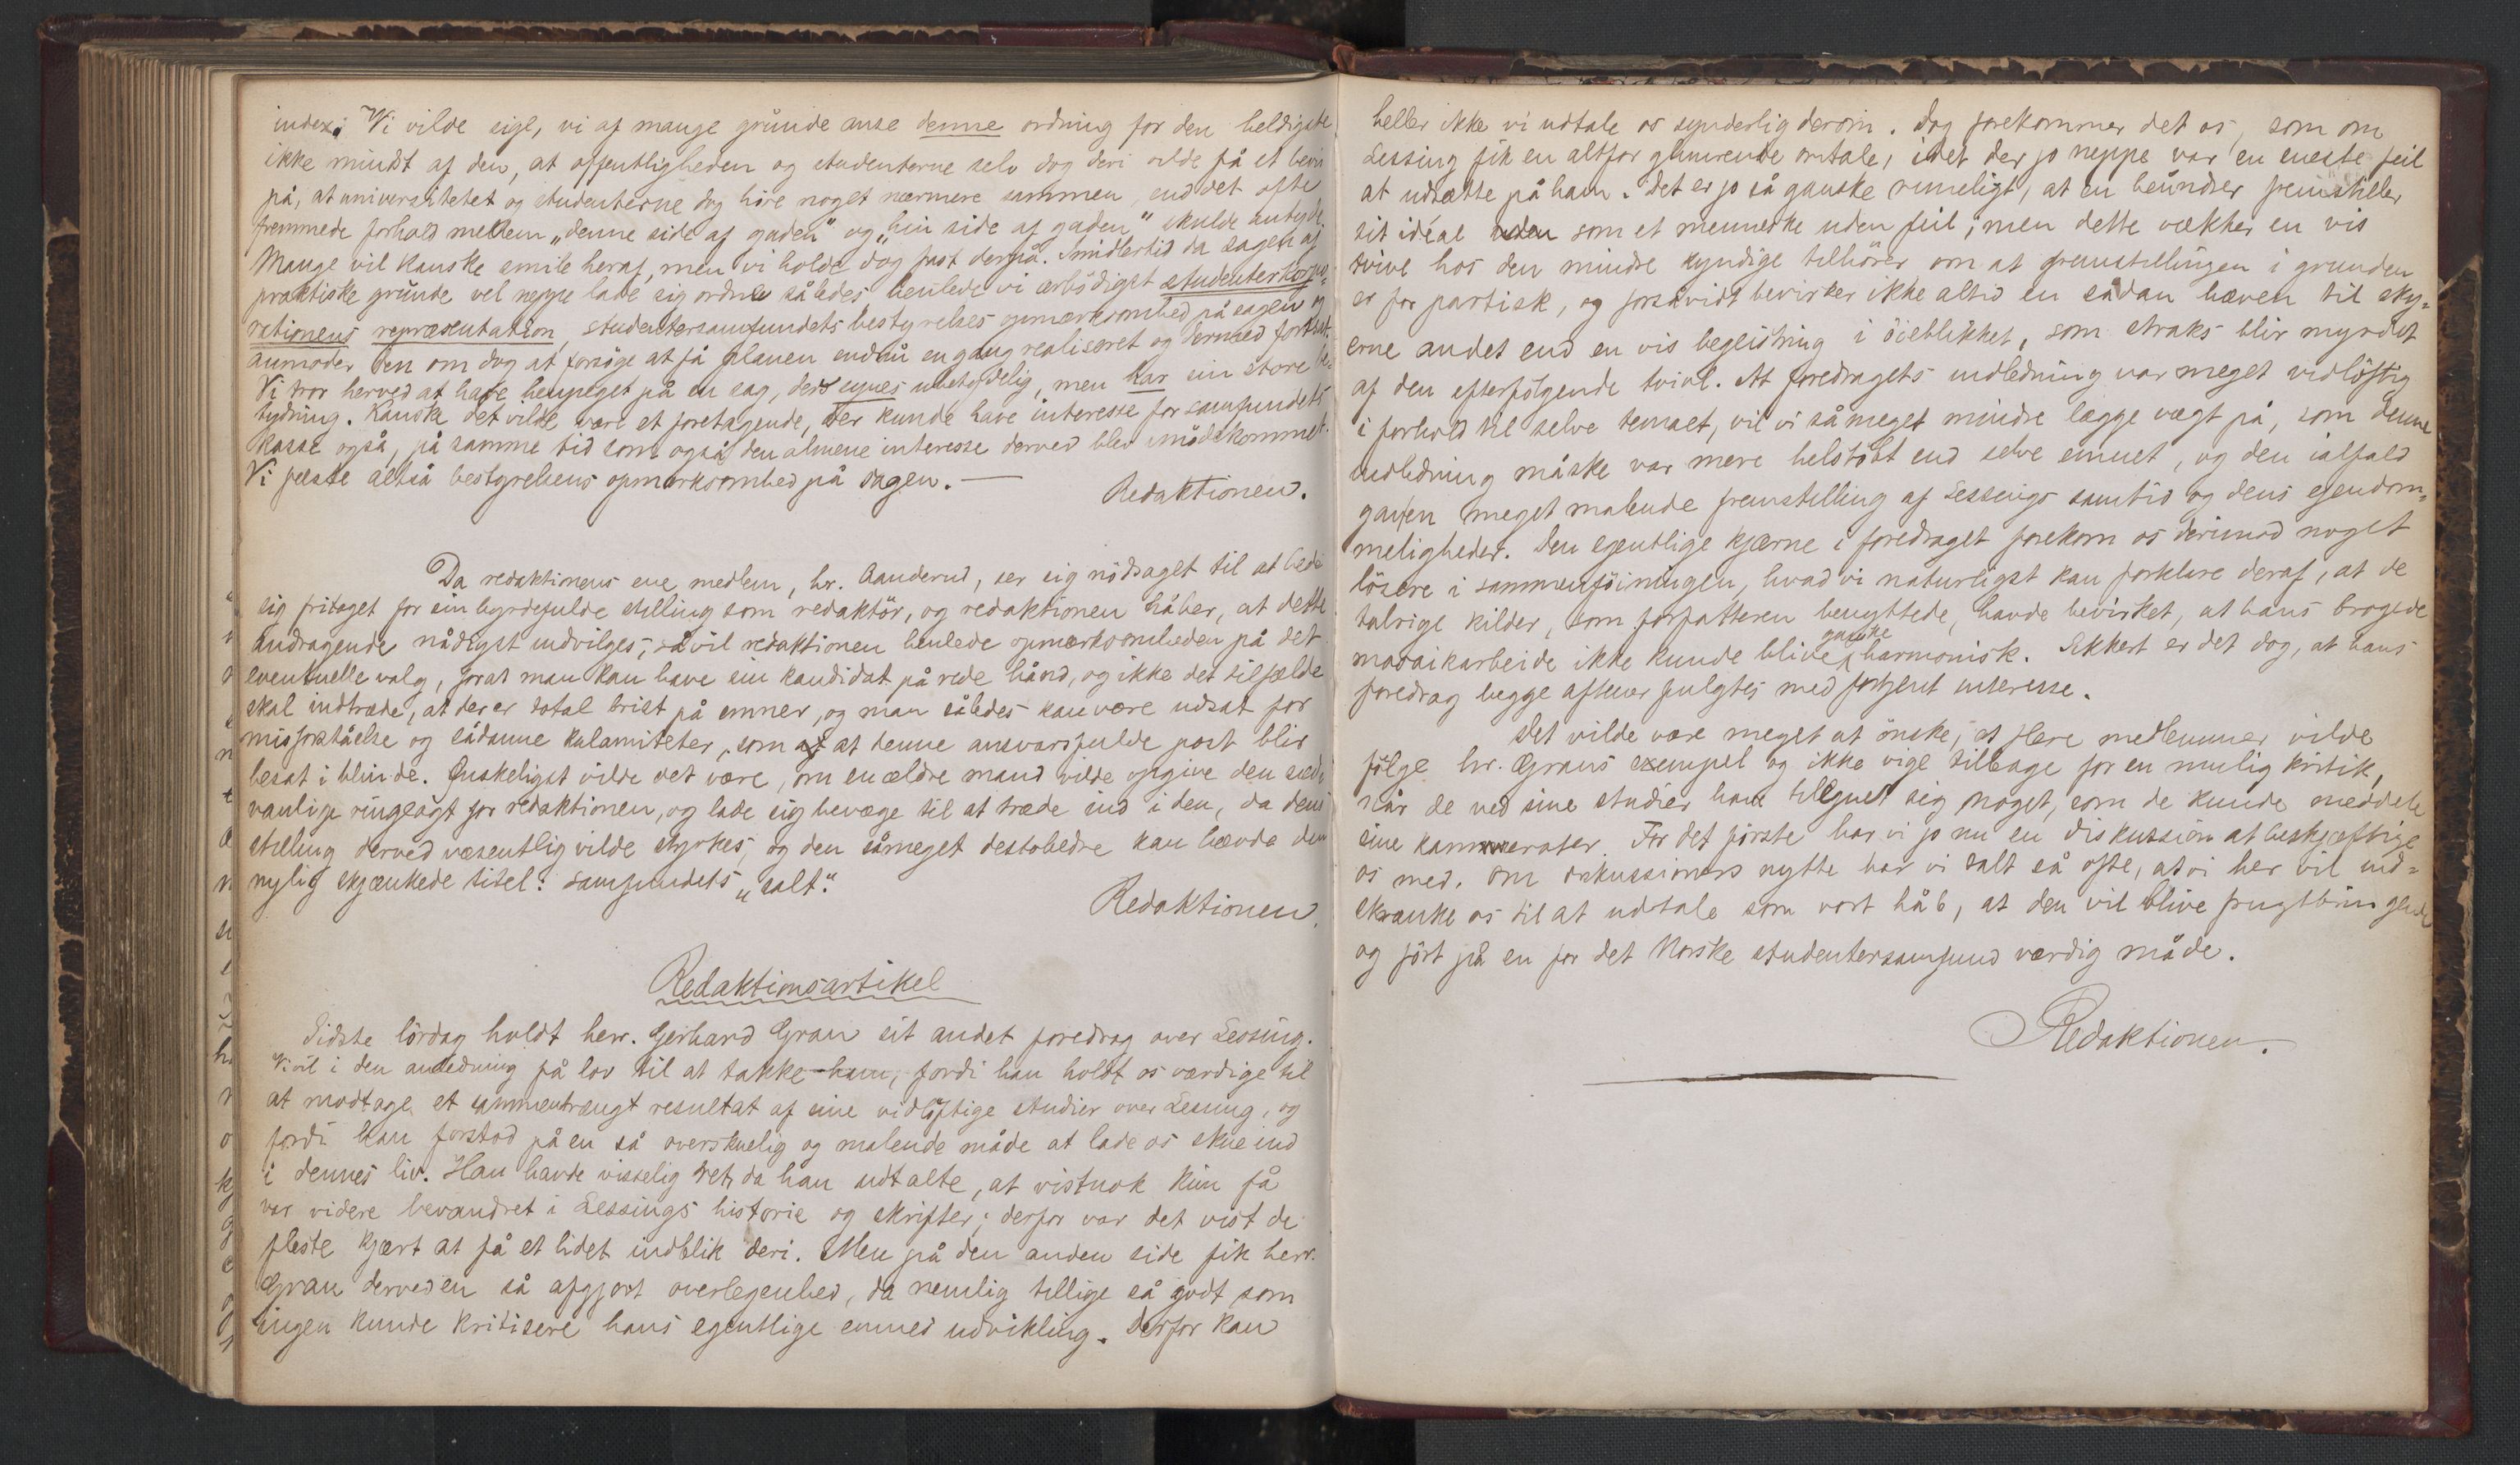 index. Vi vilde sige, vi af mange grunde anse denne ordning for den heldigste
ikke mindst af den, at offentligheden og studenterne selv dog deri vilde få et bevis
på, at universitetet og studenterne dog höre noget nærmere sammen, end det ofte
fremmede forhold mellem „denne side af gaden" og „hin side af gaden" skulde antyde.
Mange vil kanske smile heraf, men vi holde dog fast derpå. Imidlertid da sagen af
praktiske grunde vel neppe lade sig ordne således henlede vi ærbödigst studenterkorpo-
rationens repræsentation, studentersamfundets bestyrelses opmærksomhed på sagen og
anmoder den om dog at forsöge at få planen endnu engang realiseret og dermed fortsat.
Vi tror herved at have henpeget på en sag, der synes ubetydelig, men har sin store be-
tydning. Kanske det vilde være et foretagende, der kunde have interesse for samfundets
kasse også, på samme tid som også den almene interesse derved blev imödekommet.
Vi fæste altså bestyrelsens opmærksomhed på sagen. —
Redaktionen.
Da redaktionens ene medlem, hr. Aanderud, ser sig nödsaget til at bede
sig fritaget for sin byrdefulde stilling som redaktör, og redaktionen håber, at dette
andragende nådigst indvilges, så vil redaktionen henlede opmærksomheden på det
eventuelle valg, forat man kan have sin kandidat på rede hånd, og ikke det tilfælde
skal indtræde, at der er total brist på emner, og man således kan være udsat for
misforståelse og sådanne kalamiteter, som at denne ansvarsfulde post blir
besat i blinde. Önskeligst vilde det være, om en ældre mand vilde opgive den sæd-
vanlige ringeagt for redaktionen, og lade sig bevæge til at træde ind i den, da dens
stilling derved væsentlig vilde styrkes, og den såmeget destobedre kan hævde den
nylig skjænkede titel: samfundets „salt".
Redaktionen.
Redaktionsartikel
Sidste lördag holdt herr. Gerhard Gran sit andet foredrag over Lessing.
Vi vil i den anledning få lov til at takke ham, fordi han holdt os værdige til
at modtage et sammentrængt resultat af sine vidlöftige studier over Lessing, og
fordi han forstod på en så overskuelig og malende måde at lade os skue ind
i dennes liv. Han havde visselig ret, da han udtalte, at vistnok kun få
var videre bevandret i Lessings historie og skrifter; derfor var det vist de
fleste kjært at få et lidet indblik deri. Men på den anden side fik herr.
Gran derved en så afgjort overlegenhed, da nemlig tillige så godt som
ingen kunde kritisere hans egentlige emnes udvikling. Derfor kan
heller ikke vi udtale os synderlig derom. Dog forekommer det os, som om
Lessing fik en altfor glimrende omtale, idet der jo neppe var en eneste feil
at udsætte på ham. Det er jo så ganske rimeligt, at en beundrer fremstiller
sit idéal uden som et menneske uden feil; men dette vækker en vis
tvivl hos den mindre kyndige tilhörer om at fremstillingen i grunden
er for partisk, og forsåvidt bevirker ikke altid en sådan hæven til sky-
erne andet end en vis begeistring i öieblikket, som straks blir myrdet
af den efterfölgende tvivl. At foredragets indledning var meget vidlöftig
i forhold til selve temaet, vil vi såmeget mindre lægge vægt på, som denne
indledning måske var mere helstöbt end selve emnet, og den ialfald
gav en meget malende fremstilling af Lessings samtid og dens eiendom-
meligheder. Den egentlige kjærne i foredraget forekom os derimod noget
lösere i sammenföiningen, hvad vi naturligst kan forklare deraf, at de
talrige kilder, som forfatteren benyttede, havde bevirket, at hans brogede
mosaikarbeide ikke kunde blive ganske harmonisk. Sikkert er det dog, at hans
foredrag begge aftener fulgtes med fortjent interesse.
Det vilde være meget at önske, at flere medlemmer vilde
fölge hr. Grans exempel og ikke vige tilbage for en mulig kritik,
når de ved sine studier have tilegnet sig noget, som de kunde meddele
sine kammerater. For det förste har vi jo nu en diskussion at beskjæftige
os med. Om diskussioners nytte har vi talt så ofte, at vi her vil ind-
skrænke os til at udtale som vort håb, at den vil blive frugtbringende
og fört på en for det Norske studentersamfund værdig måde.
Redaktionen.